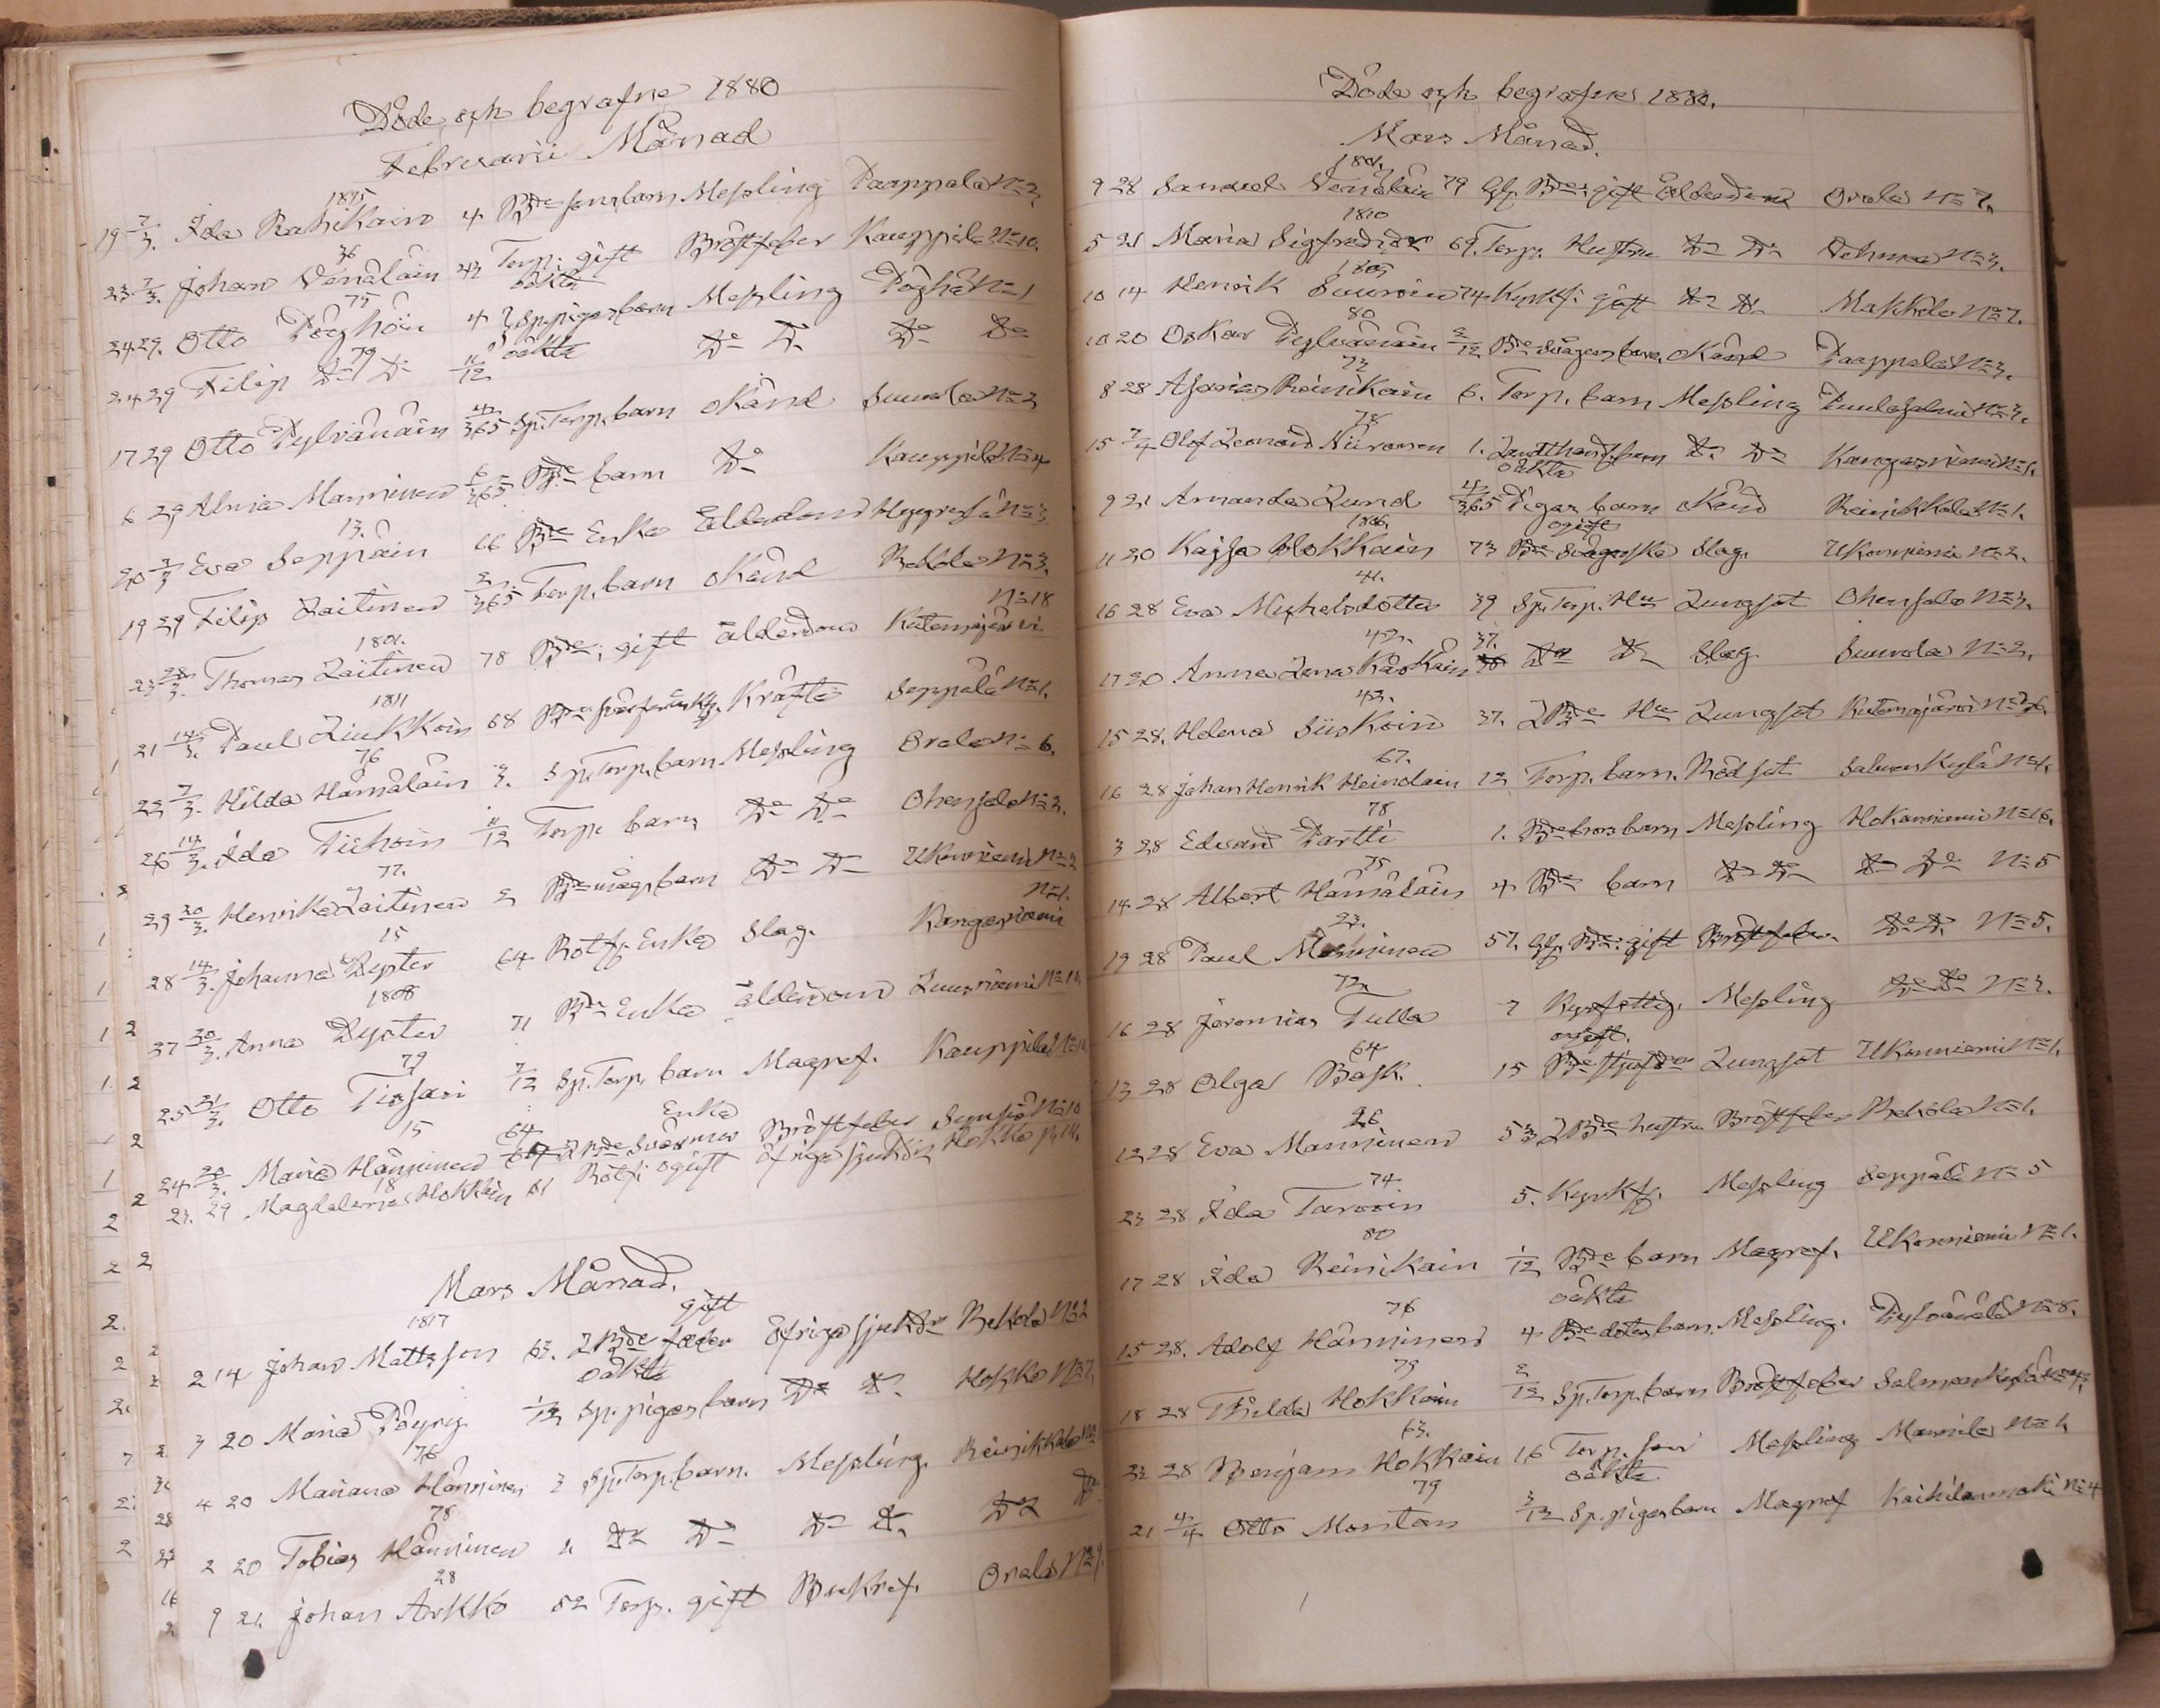 Döde och begrafne 1880
Februarii Månad
1875
19 7/3. Ida Rahikain 4 Bde sons barn Messling Paappala N=2.
36
23 7/3. Johan Venäläin 43 Torp: gift Bröstfeber Kauppila N=10.
75 oäkta
24 29. Otto Pöyhön 4 Sp. pigas barn Messling Pöyhä N=1
79 oäkta
24 29 Filip Do Do 11/12 Do Do Do Do
17 29 Otto Pylvänäin 4/365 Sp. Torp. barn okänd Suurola N=2
6 29 Alma Manninen 6/365 Bde barn Do Kauppila N=4
13.
20 7/3 Eva Seppäin 66 Bde Enka Ålderdom
19 29 Filip Laitinen 2/365 Torp. barn okänd Rekola N=3.
1801. N=18
23 28/3. Thomas Laitinen 78 Bde; gift ålderdom Kutemajärvi
1811
21 14/3. Paul Liukkoin 68 Kräfta Seppälä N=1.
76
23 7/3. Hilda Hämäläin 3. Sp. Torp. barn Messling Orala N=6.
26 14/3. Ida Tiihoin 11/12 Torp. barn Do Do Ohensalo N=2.
77.
29 20/3. Henrika Laitinen 2 Bde mågs barn Do Do Ukonniemi N=2
15 N=1.
28 14/3. Johanna Dyster 64 Rotf. Enka Slag. Kangasniemi
1808
27 30/3. Anna Dyster 71 Bde Enka ålderdom Luusniemi N=10.
79
25 21/3. Otto Tissari 7/12 Sp. Torp. barn Magref. Kauppila
15 64 Enka
24 20/3. Maria Hänninen Bde Svärmor Bröstfeber Synsiö N=10
18
23. 29 Magdalena Hokkain 61 Rotf. ogift öfriga sjukdr Hokka
Mars Månad.
1817 gift
2 14 Johan Mattsson 63. Bde fader Öfriga sjukdr Rekola N=2
oäkta
3 20 Maria Pöyry 1/12 Sp. pigas barn Do Do Hokka N=7.
76
4 20 Mariana Hänninen 3 Sp. Torp. barn. Messling. Reinikkala
78
2 20 Tobias Hänninen Do Do Do Do Do Do
28
9 21. Johan Arkko 52 Torp. gift Bukref. Orala N=9.
Döde och begrafne 1880.
Mars Månad.
1801.
9 28 Samuel Venäläin 79 Gf. Bde gift Ålderdom Orala N=7.
1810
5 21 Maria Sigfredsdr 69. Torp. Hustru Do Do
1805
10 14 Henrik Suuroin 74 Kyrkf: gift Do Do Makkola N=7.
80
10 20 Oskar Pylvänäin 2/12 Bde Svågers barn. okänd Paappala N=3.
73
8 28 Asarias Reinikain 6. Torp. barn Messling Puulasalmi N=3.
78
15 7/4 Olof Leonard Niiranen 1. Landthandl. barn Do Do Kangasniemi N=1.
oäkta
9 21 Amanda Lund 4/365 Pigas barn okänd Reinikkala N=1.
1806. ogift
11 20 Kajsa Hokkain 73 Bde Svägerska Slag. Ukonniemi N=2.
41.
16 28 Eva Michelsdotter 39 Sp. Torp. Hu Lungsot Ohensalo N=3.
42. 37.
17 20 Anna Lena Käskäin Do Do Slag. Suurola N=2.
43.
15 28. Helena Siiskoin 37. Bde Hu Lungsot Kutemajärvi
67.
16 28 Johan Henrik Heinolain 12 Torp. barn. Rödsot Salmenkylä N=4.
78
3 28 Edvard Partti 1. Bde brors barn Messling Hokanniemi N=16.
75
14 28 Albert Hämäläin 4 Bde barn Do Do Do Do N=5
23.
19 28 Paul Manninen 57. Gf. Bde: gift Bröstfeber. Do Do N=5.
72.
16 28 Jeremias Tulla 7 Kyrkfattig. Messling Do Do N=3.
64 ogift.
13 28 Olga Bask. 15 Bde Lungsot Ukonniemi N=1.
26
12 28 Eva Manninen 53 Bde hustru Bröstfeber Rekola N=1.
74
23 28 Ida Tarvoin 5. Kyrkf. Messling Seppälä N=5
80
17 28 Ida Reinikain 1/12 Bde barn Magref. Ukonniemi N=1.
76 oäkta
15 28. Adolf Hänninen 4 Bde dotters barn. Messling. Pylvänälä N=8.
79
18 28 Thilda Hokkain 2/12 Sp. Torp. barn Bröstfeber Salmenkylä
63.
22 28 Benjam Hokkain 16 Torp. son Messling Mannila N=1.
79 oäkta
21 4/4 Otto Montan 3/12 Sp. pigas barn Magref Kaihilanmäki N=4